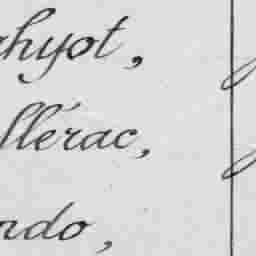 ahyot,
llérac,
ndo,